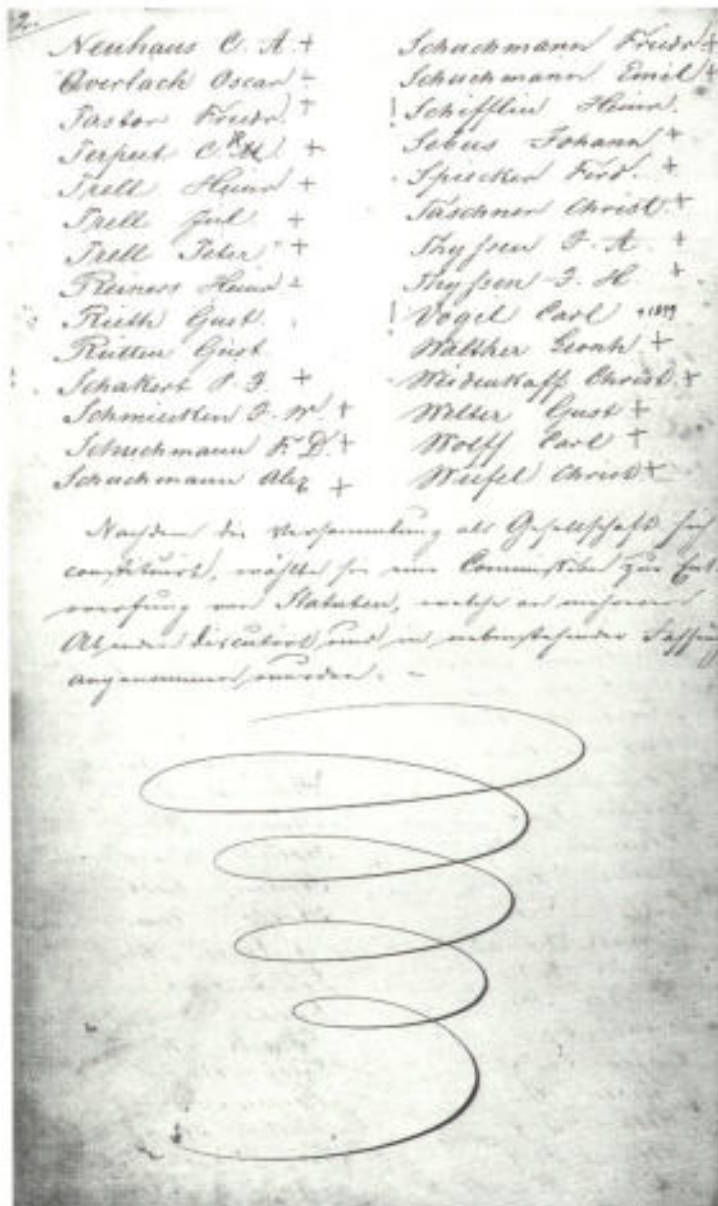 2.
Neuhaus C. A. +
Overlach Oscar +
Pastor Friedr. +
C. M. +
Prell Heinr +
Prell Jul +
Prell Peter +
Reiners Heinr +
Rieth Gust.
Rütten Gust
Schakert P. J. +
J. W. +
Schuchmann F. D. +
Schuchmann Alex +
Schuchmann Friedr +
Schuchmann Emil +
Schifflin Heinr.
Sebus Johann +
Spiecker Ferd. +
Täschner Christ. +
Thyssen J. A. +
Thyssen J. H. +
Vogel Carl + 1899
Walther Leonh +
Weidenkaff Christ +
Welter Gust +
Wolff Carl +
Christ +
Nachdem die Versammlung als Gesellschaft sich
constituirt, wählte sie eine Commission zur Ent-
werfung von Statuten, welche an mehreren
Abenden discutirt und in nebenstehender Fassung
angenommen wurden. –